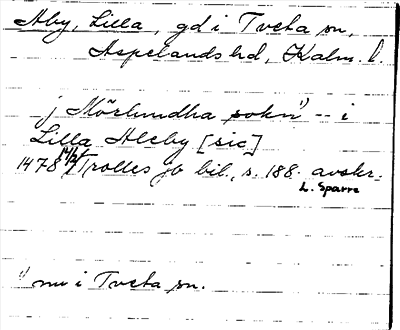 Åby, Lilla, gd i Tveta sn,
Aspelands hd, Kalm. l.
j Mörlundha sokn¹⁾ -- i
Lilla Aleby [sic]
1478 14/2 Trolles jb bil., s. 188. avskr.
L. Sparre
¹⁾ nu i Tveta sn.